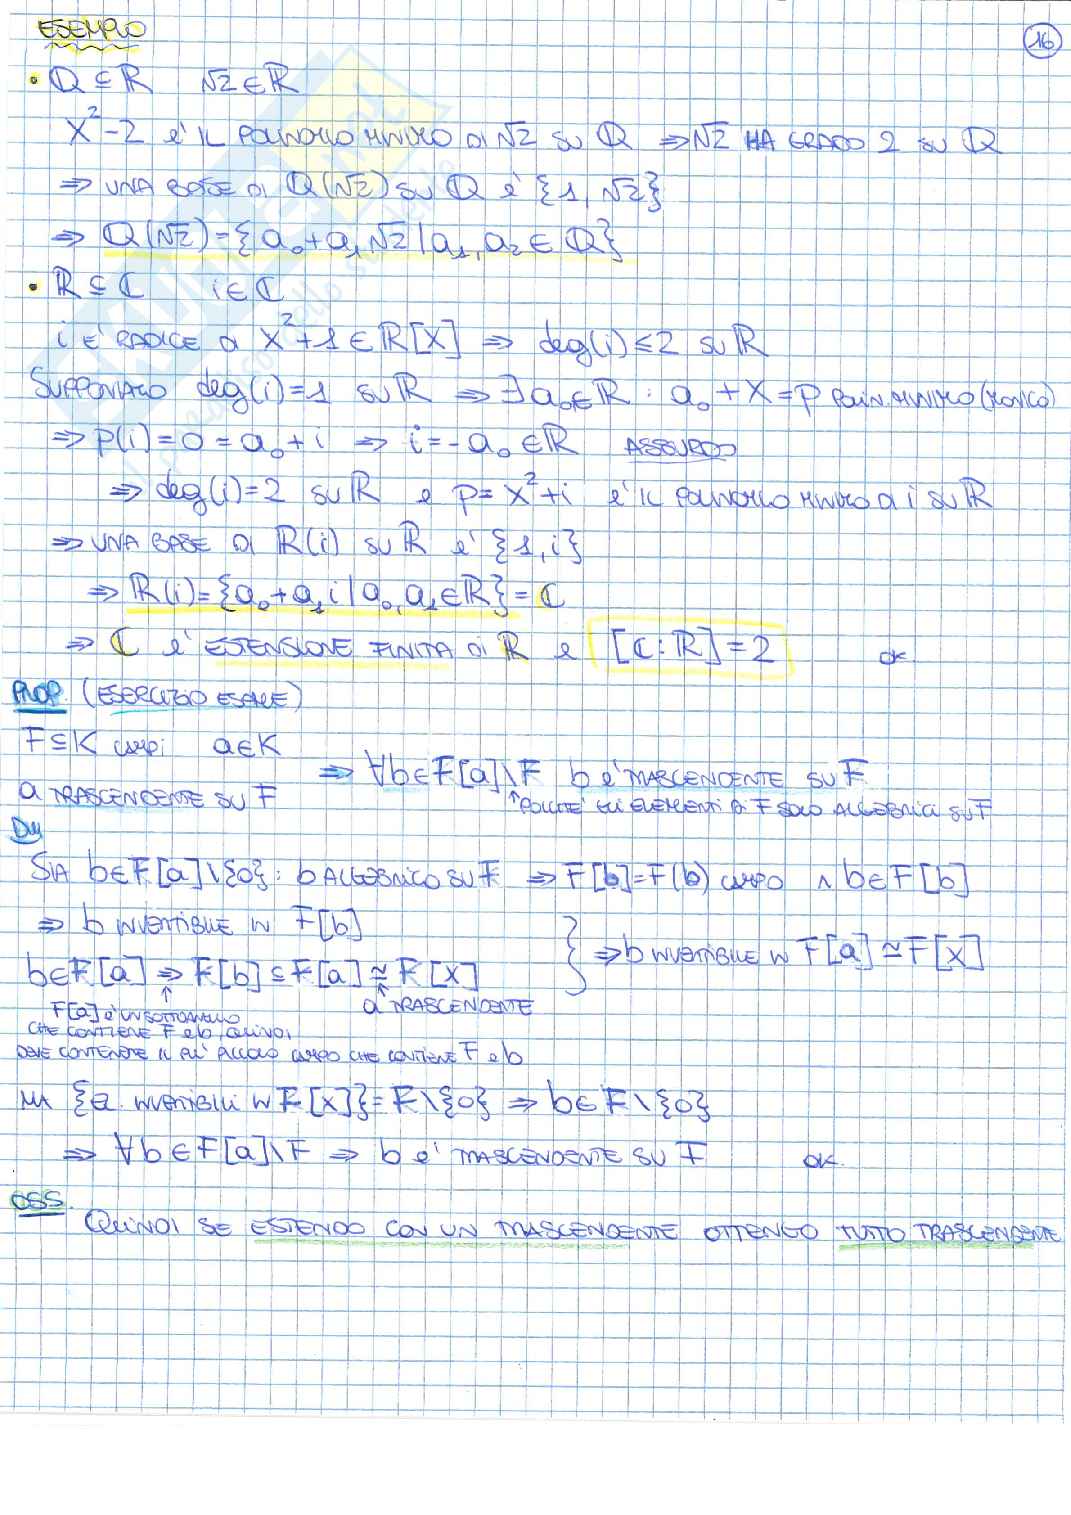 ESEMPIO
16
• Q ⊆ R √2 ∈ R
X²-2 E' IL POLINOMIO MINIMO DI √2 SU Q ⇒ √2 HA GRADO 2 SU Q
⇒ UNA BASE DI Q(√2) SU Q E' {1, √2}
⇒ Q(√2) = {a₀+a₁√2 | a₁, a₂ ∈ Q}
• R ⊆ C i ∈ C
i E' RADICE DI X²+1 ∈ R[X] ⇒ deg(i) ≤ 2 SU R
SUPPONIAMO deg(i)=1 SU R ⇒ ∃ a₀ ∈ R : a₀ + X = p POLIN. MINIMO (MONICO)
⇒ p(i) = 0 = a₀ + i ⇒ i = -a₀ ∈ R ASSURDO
⇒ deg(i)=2 SU R e p = X²+i E' IL POLINOMIO MINIMO DI i SU R
⇒ UNA BASE DI R(i) SU R E' {1, i}
⇒ R(i) = {a₀+a₁i | a₀, a₁ ∈ R} = C
⇒ C E' ESTENSIONE FINITA DI R e [C:R] = 2 OK.
PROP. (ESERCIZIO ESAME)
F ⊆ K campi a ∈ K
⇒ ∀b ∈ F[a]\F b E' TRASCENDENTE SU F
a TRASCENDENTE SU F
↑ POICHE' GLI ELEMENTI DI F SONO ALGEBRICI SU F
DIM
SIA b ∈ F[a]\{0} : b ALGEBRICO SU F ⇒ F[b] = F(b) CAMPO ∧ b ∈ F[b]
⇒ b INVERTIBILE IN F[b]
⇒ b INVERTIBILE IN F[a] ≃ F[X]
b ∈ F[a] ⇒ F[b] ⊆ F[a] ≃ F[X]
↑ a TRASCENDENTE
↑ F[a] E' UN SOTTOANELLO
CHE CONTIENE F e b, QUINDI
DEVE CONTENERE IL PIU' PICCOLO CAMPO CHE CONTIENE F e b
MA {el. INVERTIBILI IN F[X]} = F\{0} ⇒ b ∈ F\{0}
⇒ ∀b ∈ F[a]\F ⇒ b E' TRASCENDENTE SU F OK.
OSS.
QUINDI SE ESTENDO CON UN TRASCENDENTE OTTENGO TUTTO TRASCENDENTE